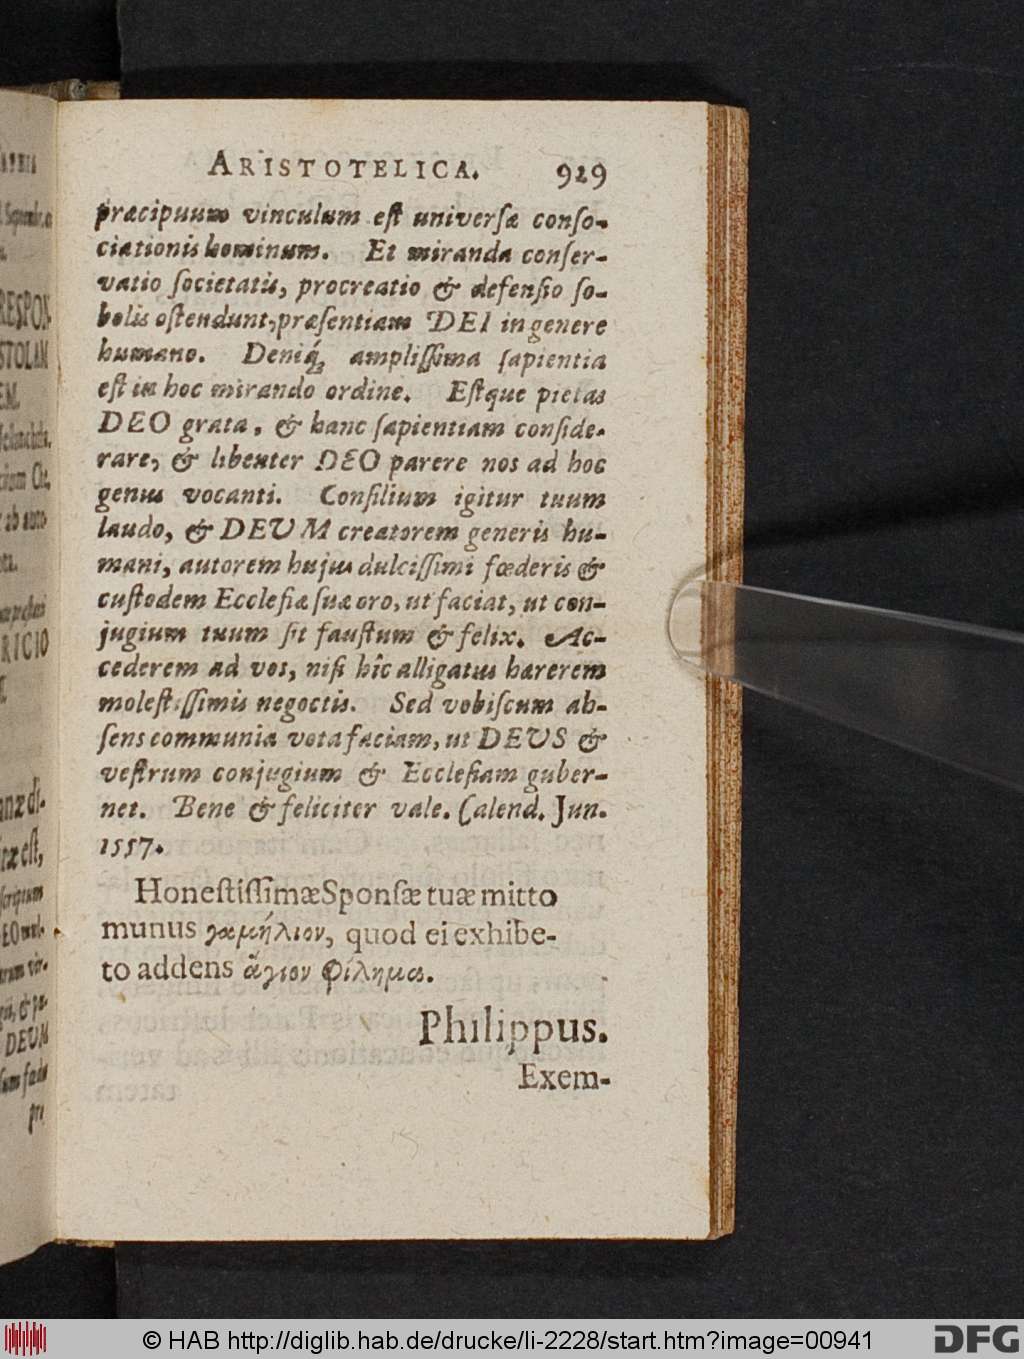 ARISTOTELICA. 929
præcipuum vinculum eſt univerſæ conſo-
ciationis hominum. Et miranda conſer-
vatio ſocietatis, procreatio & defenſio ſo-
bolis oſtendunt, præſentiam DEI in genere
humano. Deniq́; ampliſſima ſapientia
eſt in hoc mirando ordine. Eſtque pietas
DEO grata, & hanc ſapientiam conſide-
rare, & libenter DEO parere nos ad hoc
genus vocanti. Conſilium igitur tuum
laudo, & DEUM creatorem generis hu-
mani, autorem hujus dulciſſimi fœderis &
cuſtodem Eccleſiæ ſuæ oro, ut faciat, ut con-
jugium tuum ſit fauſtum & felix. Ac-
cederem ad vos, niſi hîc alligatus hærerem
moleſtiſſimis negociis. Sed vobiſcum ab-
ſens communia vota faciam, ut DEUS &
veſtrum conjugium & Eccleſiam guber-
net. Bene & feliciter vale. Calend. Jun.
1557.
Honeſtiſſimæ Sponſæ tuæ mitto
munus γαμήλιον, quod ei exhibe-
to addens ἅγιον φίλημα.
Philippus.
Exem-
RESPON-
STOLAM
EM.
RICIO
DEUM
© HAB http://diglib.hab.de/drucke/li-2228/start.htm?image=00941
DFG